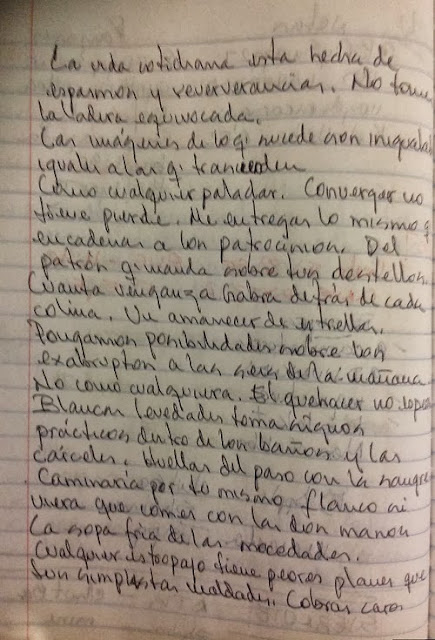 La vida cotidiana esta hecha de
espasmos y reververancias. No tome
la ladera equivocada.
Las imágenes de lo q sucede son inigualab
iguales a las q trancienden
Como cualquier paladar. Convergar no
tiene pierde. Me entregas lo mismo q
encadenas a los patrocinios. Del
patrón q manda sobre tus destellos
Cuanta venganza habra detrás de cada
colina. Un amanecer de estrellas.
Pongamos posibilidades sobre los
exabruptos a las seis de la mañana
No como cualquiera. El quehacer no
Blancas levedades toma
prácticos dentro de los baños y las
cárceles. Huellas del paso con la sangre
Caminaria por tu mismo flanco si
viera que comes con las dos manos
La sopa fria de las mocedades.
Cualquier estropajo tiene peores planes que
sus simplistas maldades. Cobras caros